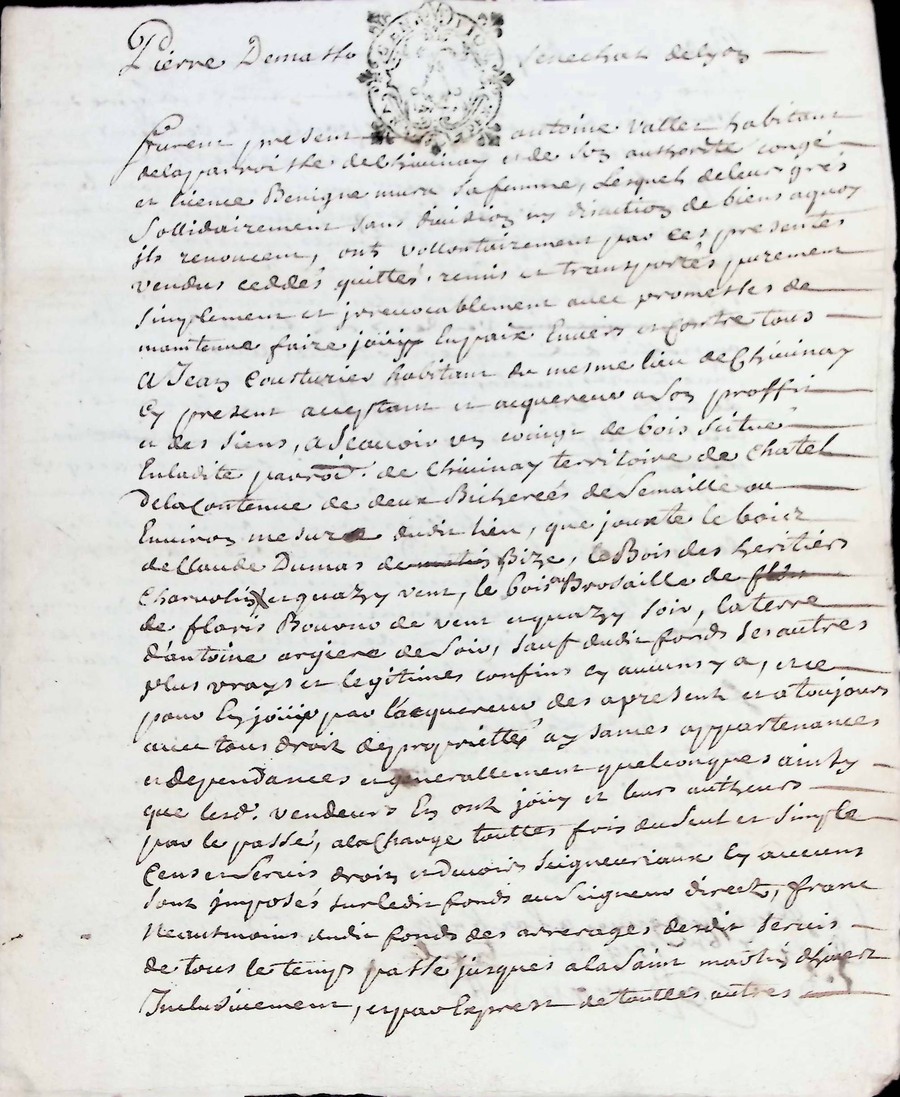 Pierre Demasso senechal de lyon
furent present antoine vallet habitant
de la parroisse de Chivinay et de son authorité congé
et licence Benigne mure sa femme, Lesquels de leurs grés
Sollidairement sans division ny discution de biens a quoy
ils renoncent, ont vollontairement par ces presentes
vendus ceddés quittés remis et transportés purement
Simplement et jrrevocablement avec promesses de
maintenue faire joüir En paix Envers et Contre tous
A Jean Cousturier habitant du mesme lieu de Chivinay
Cy present acceptant et acquereur a son proffit
et des siens, a Scavoir un coingt de bois scitué
En ladite parroi. de Chivinay territoire de Chatel
De la Contenue de deux Bicherées de Semaille ou
Environ mesure dudit lieu, que jouxte le bois
de Claude Dumas de Bize, le Bois des heritiers
Charvolin et quazy vent, le bois ou Brosaille de
de floris Bouvur de vent et quazy soir, la terre
d'antoine argiere de Soir, sauf dudit fonds ses autres
plus vrays et legitimes confins Cy aucuns y a, et ce
pour En joüir par l'acquereur des apresent et a toujours
avec tous droit de proprietté ay sances appartenances
et dependances et generallement quelconques ainsy
que lesd. vendeurs En ont joüy et leurs autheurs
par le passé, a la Charge touttes fois du Seul et Simple
Cens et Servis droits et devoirs Seigneuriaux Cy aucuns
Sont jmposés sur ledit fonds au Seigneur direct, franc
Neautmoins dudit fonds des arrerages dudit servis
de tous le temps passé jusques a la Saint martin d'hivert
Inclusivement, et par Exprest de touttes autres